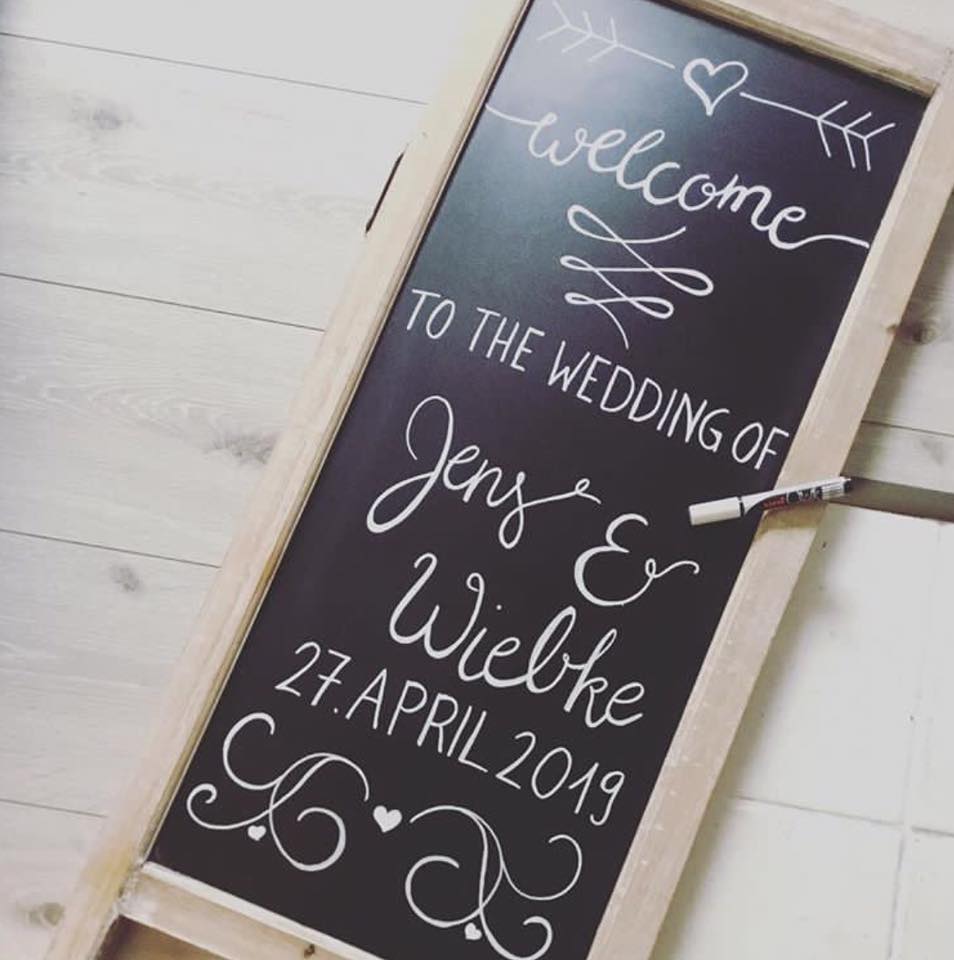 welcome
TO THE WEDDING OF
Jens &
Wiebke
27. APRIL 2019